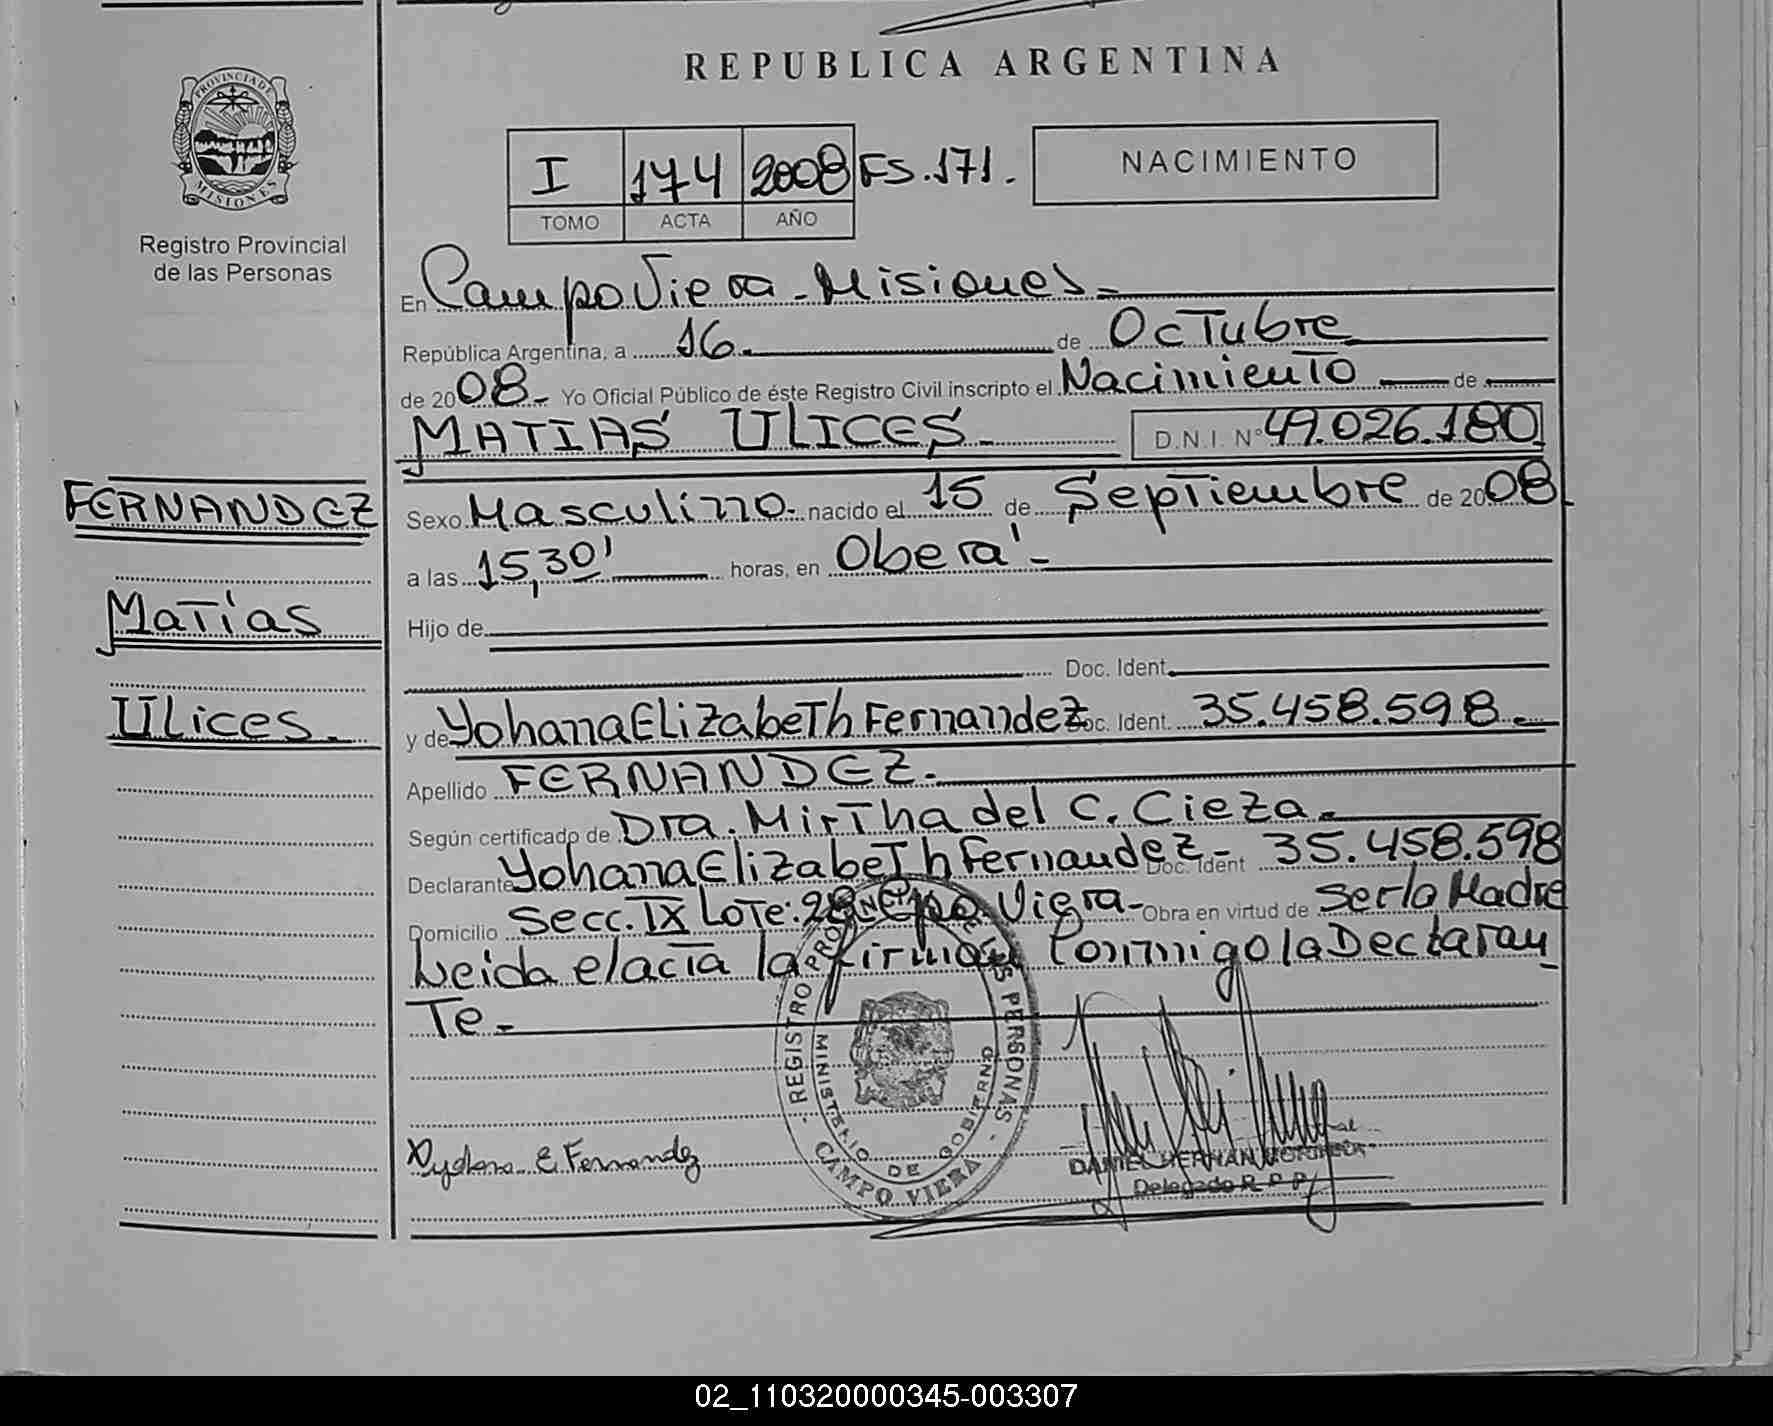 REPUBLICA ARGENTINA
PROVINCIA DE MISIONES
Registro Provincial
de las Personas
I 174 2008 FS.171.
TOMO ACTA AÑO
NACIMIENTO
En Campo Viera - Misiones -
República Argentina, a 16. de Octubre
de 2008 - Yo Oficial Público de éste Registro Civil inscripto el Nacimiento de
MATIAS ULICES - D.N.I. Nº 49.026.180
FERNANDEZ
Matías
Ulices -
Sexo Masculino - nacido el 15 de Septiembre de 2008
a las 15,30' horas, en Oberá -
Hijo de
Doc. Ident.
y de Yohana Elizabeth Fernandez Doc. Ident. 35.458.598 -
Apellido FERNANDEZ -
Según certificado de Dra. Mirtha del C. Cieza -
Declarante Yohana Elizabeth Fernandez - Doc. Ident 35.458.598
Domicilio Secc. IX Lote: Cpo. Viera - Obra en virtud de Ser la Madre
Leida el acta la firman Conmigo la Declaran
Te -
REGISTRO PROVINCIAL DE LAS PERSONAS - CAMPO VIERA -
MINISTERIO DE GOBIERNO
E Fernandez
DANIEL HERNAN
Delegado R P P
02_110320000345-003307